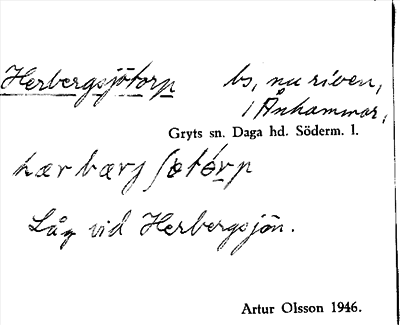 Herbergsjötorp bs, nu riven,
/ Ånhammar,
Gryts sn. Daga hd. Söderm. l.
hærbærjʃøtórp
Låg vid Herbergsjön.
Artur Olsson 1946.